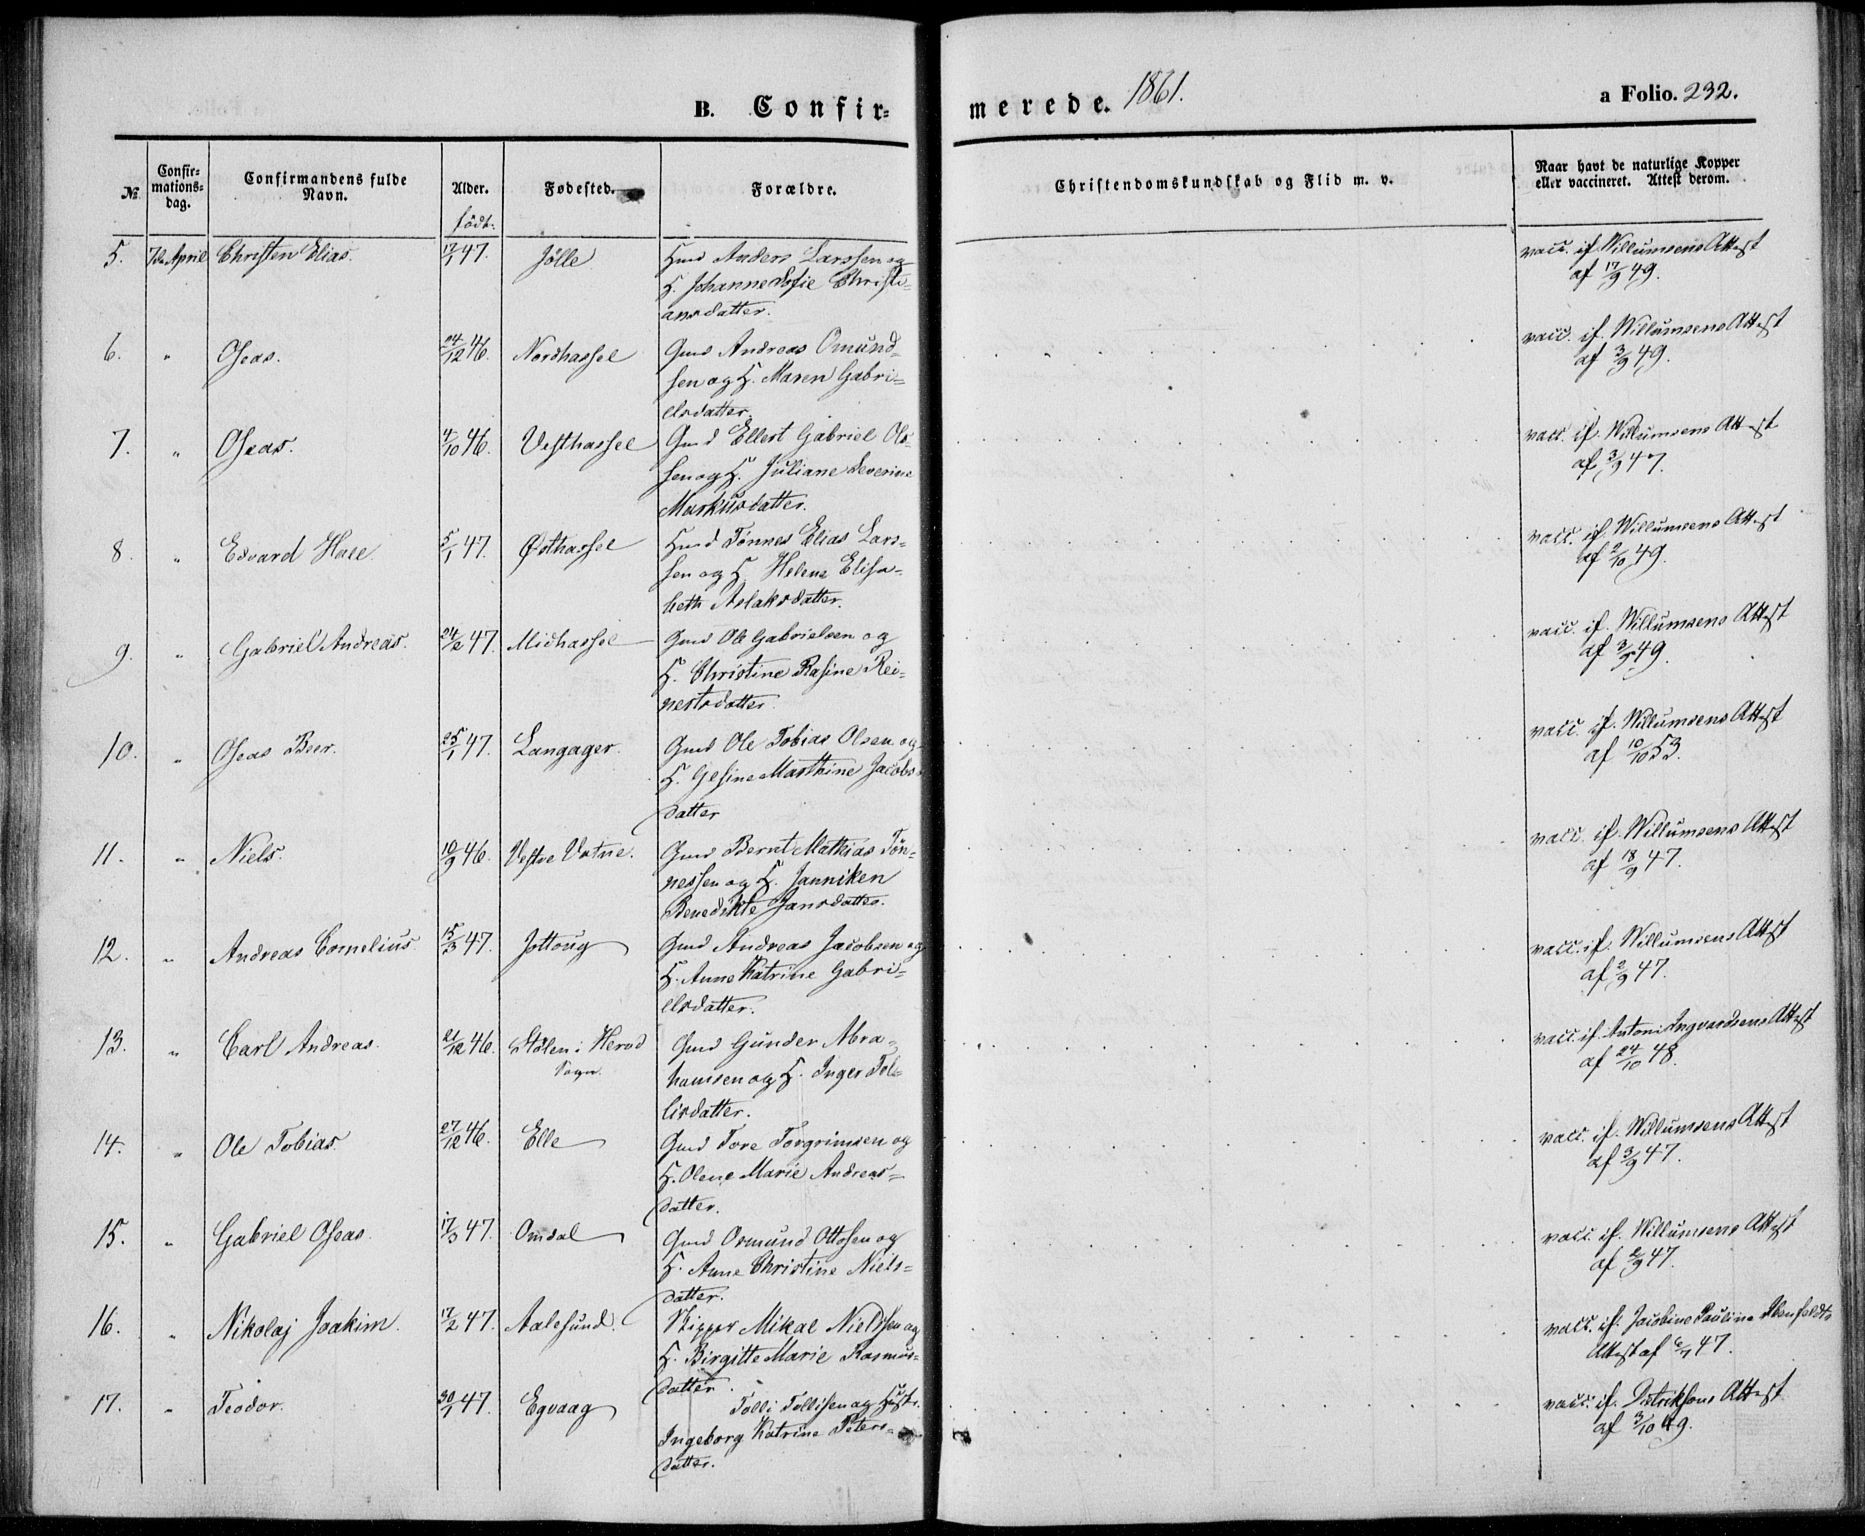 B. Confir-
merede. 1861.
a Folio. 232.
№
Confir-
mations-
dag.
Confirmandens fulde
Navn.
Alder.
født.
Fødested.
Forældre.
Christendomskundskab og Flid m. v.
Naar havt de naturlige Kopper
eller vaccineret. Attest derom.
5. 7de April Christen Elias. 17/1 47. Jølle Gmd Anders Larssen og
H. Johanne Sofie Christi-
ansdatter.
vacc. if. Willumsens Attest
af 17/9 49.
6. " Oseas. 24/12 46. Nordhassel Gmd Andreas Omund-
sen og H. Maren Gabri-
elsdatter.
vacc. if. Willumsens Attest
af 3/9 49.
7. " Oseas. 4/10 46. Vesthassel Gmd Ellert Gabriel Ol-
sen og H. Juliane Severine
Markusdatter.
vacc. if. Willumsens Attest
af 3/9 47.
8. " Edvard Hall. 5/1 47. Østhassel Hmd Tønnes Elias Lars-
sen og H. Helene Elisa-
beth Aslaksdatter.
vacc. if. Willumsens Attest
af 2/10 49.
9. " Gabriel Andreas. 24/2 47. Midhassel Gmd Ole Gabrielsen og
H. Christine Rasine Rei-
nertsdatter.
vacc. if. Willumsens Attest
af 3/9 49.
10. " Oseas Beer. 25/1 47. Langager. Gmd Ole Tobias Olsen og
H. Gesine Marthine Jacobs-
datter
vacc. if. Willumsens Attest
af 10/10 53.
11. " Niels. 10/9 46. Vestre Vatne. Gmd Bernt Mathias Tøn-
nessen og H. Janniken
Benedikte Jansdatter.
vacc. if. Willumsens Attest
af 18/9 47.
12. " Andreas Cornelius 15/3 47. Jottoug Gmd Andreas Jacobsen og
H. Anne Katrine Gabri-
elsdatter.
vacc. if. Willumsens Attest
af 2/9 47.
13. " Carl Andreas. 21/12 46. Stølen i Herod
Sogn.
Gmd Gunder Abra-
hamsen og H. Inger Tol-
lisdatter.
vacc. if. Antoni Ingvardsens Attest
af 24/10 48.
14. " Ole Tobias. 27/12 46. Elle Gmd Tore Torgrimsen og
H. Olene Marie Andreas-
datter.
vacc. if. Willumsens Attest
af 3/9 47.
15. " Gabriel Oseas. 17/3 47. Omdal Gmd Osmund Ottosen og
H. Anne Christine Niels-
datter.
vacc. if. Willumsens Attest
af 2/9 47.
16. " Nikolaj Joakim. 17/2 47. Aalesund. Skipper Mikal Nielssen og
H. Birgitte Marie Rasmus-
datter.
vacc. if. Jacobine Pauline
Attest af 47.
17. " Teodor. 30/1 47. Egvaag Tolli Tollisen og Hustr.
Ingeborg Katrine Peters-
datter.
vacc. if. Didriksons Attest
af 3/10 49.